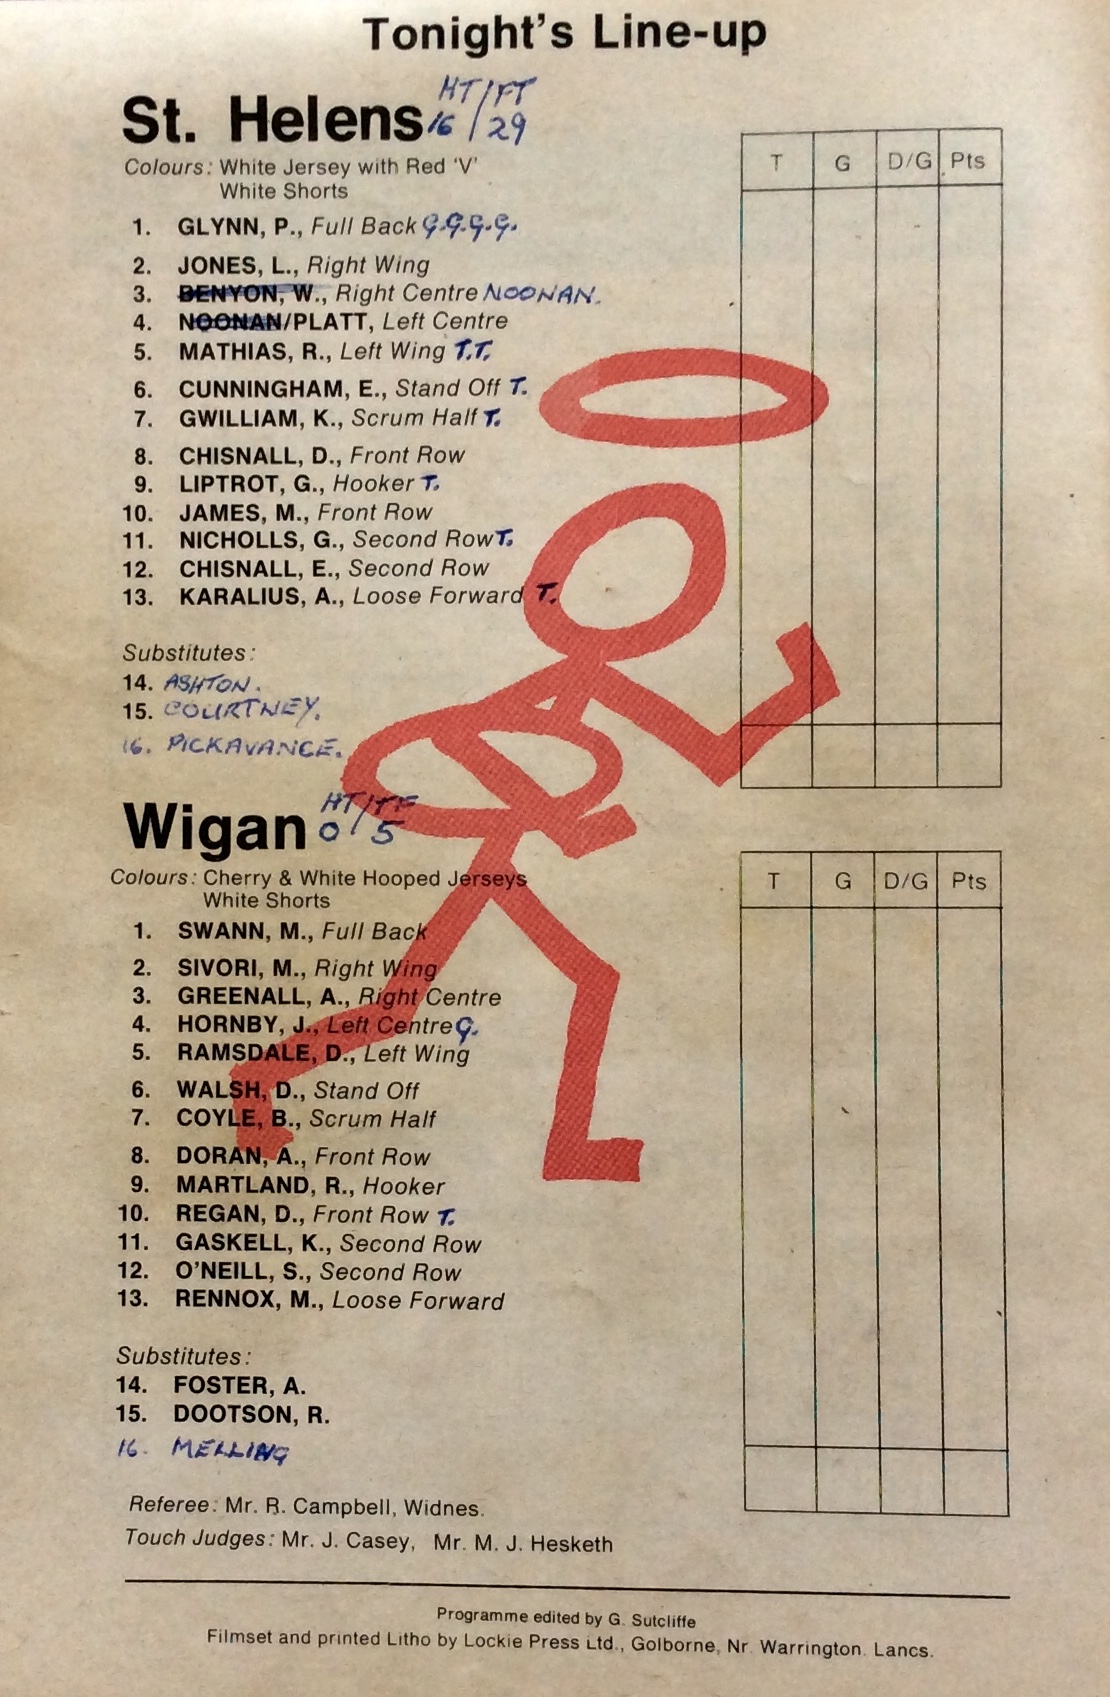 Tonight's Line-up
HT/FT
St. Helens 16/29
Colours: White Jersey with Red 'V'
White Shorts
T G D/G Pts
1. GLYNN, P., Full Back G.G.G.G.
2. JONES, L., Right Wing
3. BENYON, W., Right Centre NOONAN.
4. NOONAN/PLATT, Left Centre
5. MATHIAS, R., Left Wing T.T.
6. CUNNINGHAM, E., Stand Off T.
7. GWILLIAM, K., Scrum Half T.
8. CHISNALL, D., Front Row
9. LIPTROT, G., Hooker T.
10. JAMES, M., Front Row
11. NICHOLLS, G., Second Row T.
12. CHISNALL, E., Second Row
13. KARALIUS, A., Loose Forward T.
Substitutes:
14. ASHTON.
15. COURTNEY.
16. PICKAVANCE.
HT/TF
Wigan 0/5
Colours: Cherry & White Hooped Jerseys
White Shorts
T G D/G Pts
1. SWANN, M., Full Back
2. SIVORI, M., Right Wing
3. GREENALL, A., Right Centre
4. HORNBY, J., Left Centre G.
5. RAMSDALE, D., Left Wing
6. WALSH, D., Stand Off
7. COYLE, B., Scrum Half
8. DORAN, A., Front Row
9. MARTLAND, R., Hooker
10. REGAN, D., Front Row T.
11. GASKELL, K., Second Row
12. O'NEILL, S., Second Row
13. RENNOX, M., Loose Forward
Substitutes:
14. FOSTER, A.
15. DOOTSON, R.
16. MELLING
Referee: Mr. R. Campbell, Widnes.
Touch Judges: Mr. J. Casey, Mr. M. J. Hesketh
Programme edited by G. Sutcliffe
Filmset and printed Litho by Lockie Press Ltd., Golborne, Nr. Warrington. Lancs.